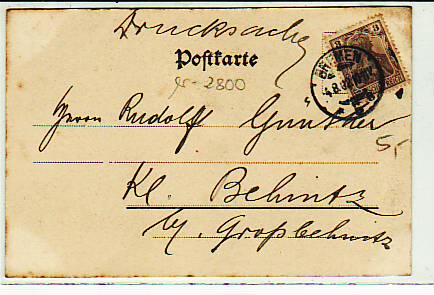 Drucksache
Postkarte
2800
Herrn Rudolf Günther
5,-
Kl. Behnitz
by. Großbehnitz
3 3
BREMEN
4.8.